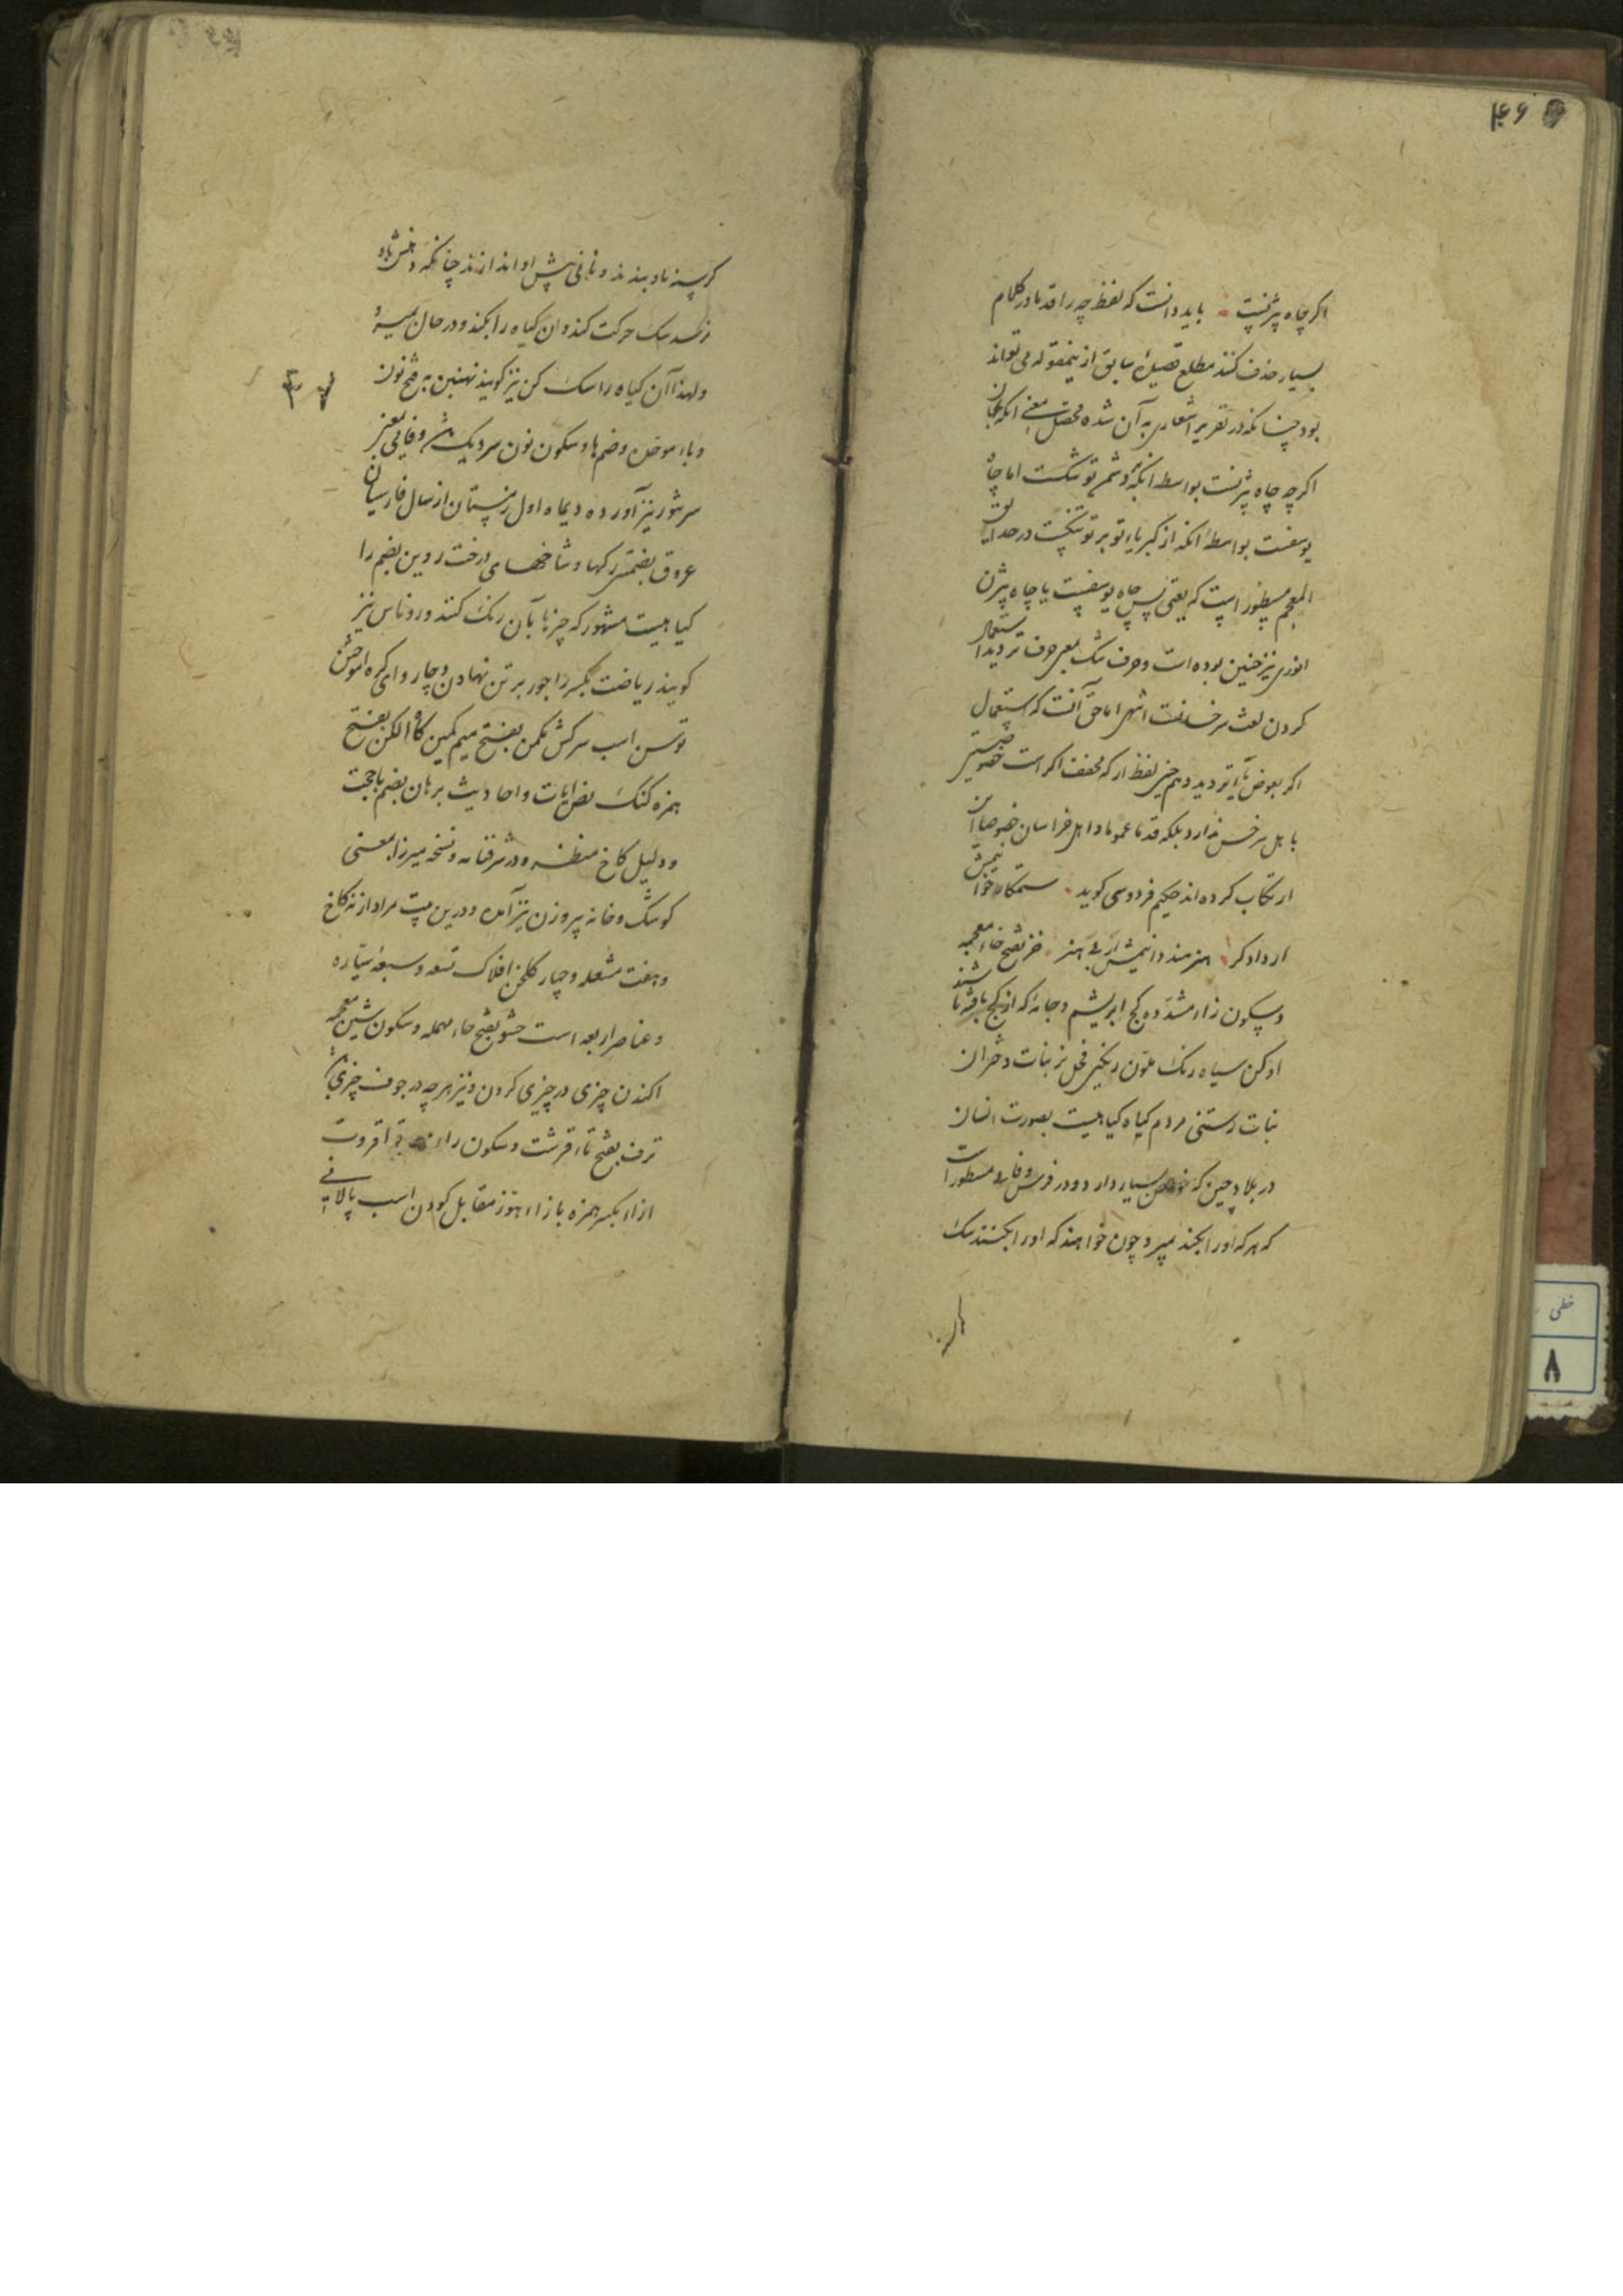 ۴۶
اکر چاه بیژنست باید دانست که لفظ چه را قدما در کلام
بسیار حذف کنند مطلع قصیدهٔ سابق ازینمقوله می تواند
بود چنانکه در تقریر اشعاری به آن شده محصل معنی انکه
اکرچه چاه بیژنست بواسطه انکه دشمن تو شکست اما چاه
یوسفست بواسطهٔ انکه از کبریاء تو بر تو در حدایق
المعجم مسطور است که یعنی پس چاه یوسفیست یا چاه بیژن
انوری نیز چنین بوده است و حرف شک بمعنی حرف تردید استعمال
کردن لغت سرخسانست انتهی اما حق آنست که استعمال
اکر بعوض یا تردید و هم چنین لفظ ار که مخفف اکر است خصوصیتی
باهل سرخس ندارد بلکه قدما عموما و اهل خراسان خصوصا آن
ارتکاب کرده اند حکیم فردوسی کوید ستمکاره خوانیمش
ار دادکر هنرمند دانیمش ار بی هنر خز بفتح خاء معجمه
و سکون زاء مشدده کج ابریشم و جامهٔ که از کج بافته باشند
ادکن سیاه رنک ملون رنکین فحل نر بنات دختران
نبات رستنی مردم کیاه کیاهیست بصورت انسان
در بلاد چین که خواص بسیار دارد و در فرس وفایی مسطور است
که هر که اورا بکند بمیرد چون خواهند که اورا بکنند سک
کرسنه باو بندند و نانی پیش او اندازند چنانکه دهنش باو
نرسد سک حرکت کند و ان کیاه را بکند و در حال بمیرد
و لهذا آن کیاه را سک کن نیز کویند نهنبن به فتح نون
۳۷
و باء موحده و ضم ها و سکون نون سر دیک و وفایی بمعنی
سر تنور نیز آورده دیماه اول زمستان از سال فارسیان
عروق بضمتین رکها و شاخهای درخت روین بضم را
کیاهیست مشهور که چیزها بآن رنک کنند و روناس نیز
کویند ریاضت بکسر را جور بر تن نهادن و چاروای کره اموختن
توسن اسب سرکش مکمن بفتح میم کمین کاه الکن بفتح
همزه کنک نص ایات و احادیث برهان بضم با حجت
و دلیل کاخ منظره و در شرفنامه و نسخه میرزا بمعنی
کوشک و خانه پر روزن نیز آمده و درین بیت مراد از نه کاخ
و هفت مشعله و چهار کلخن افلاک تسعه و سبعهٔ سیاره
و عناصر اربعه است حشو بفتح حاء مهمله و سکون شین معجمه
اکندن چیزی در چیزی کردن و نیز هر چه در جوف چیزی
ترف بفتح تاء قرشت و سکون راء قراقروت
ازاء بکسر همزه با زاء هوز مقابل کودن اسب پالانی
خطی
۸